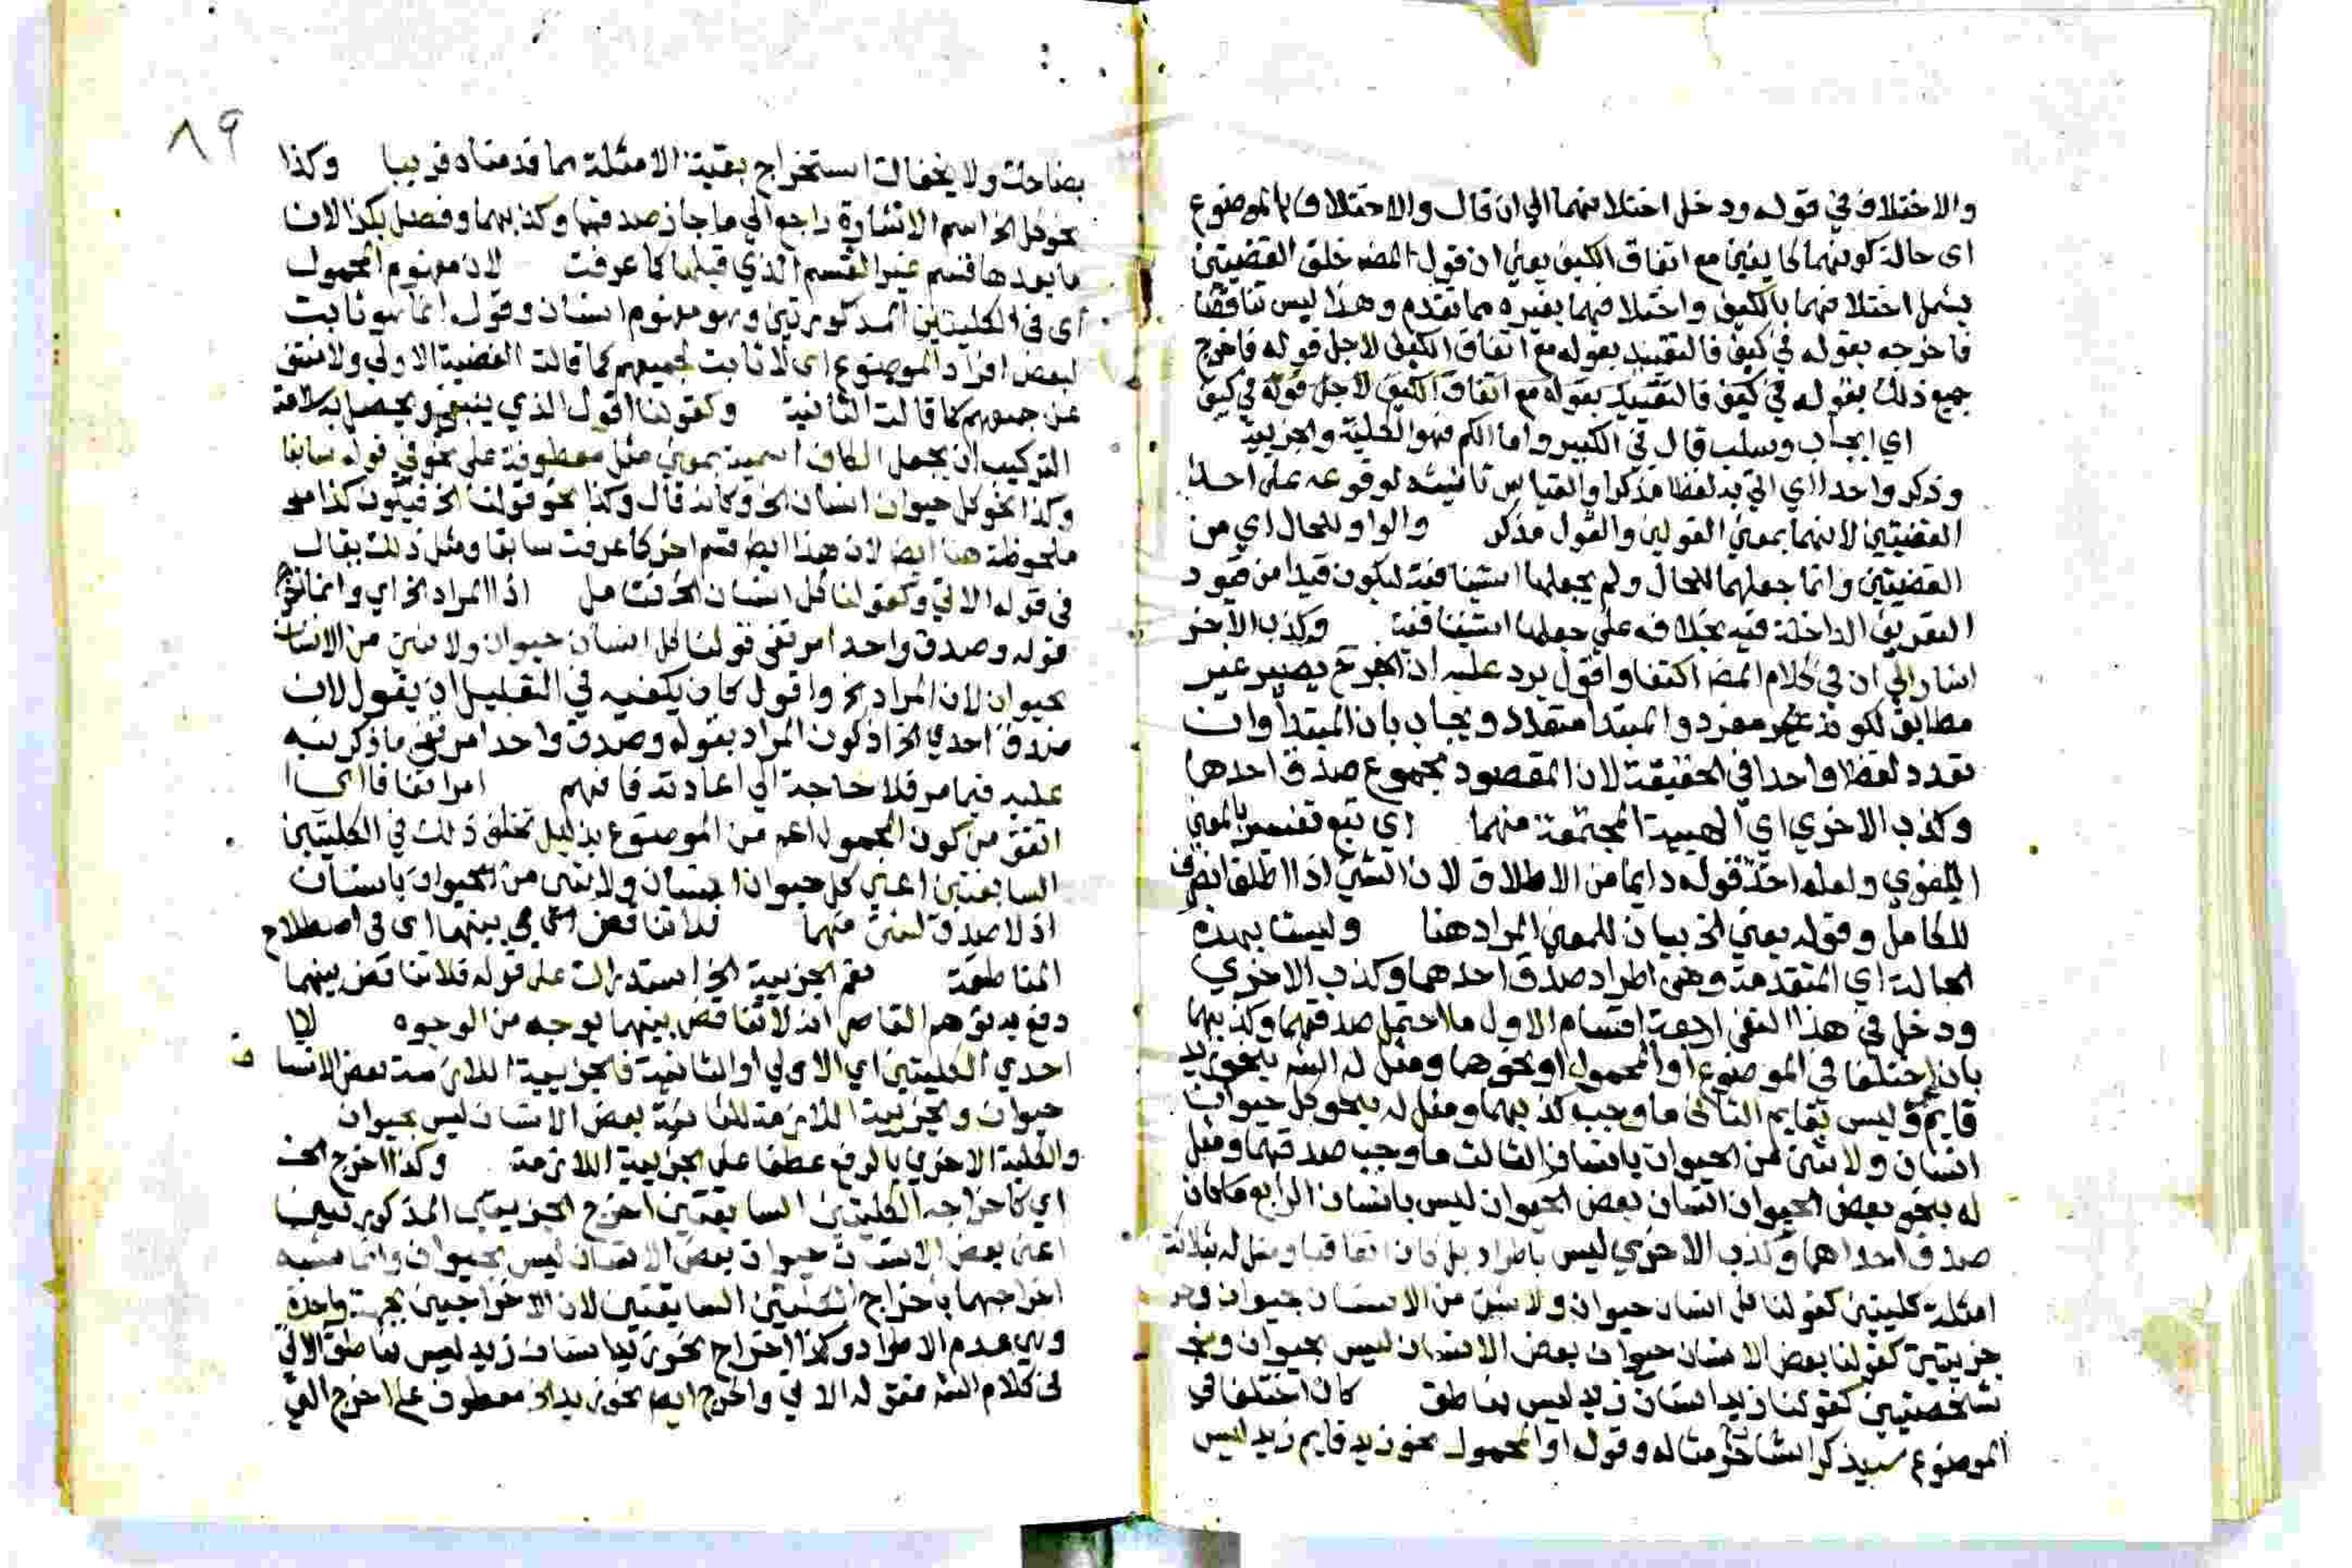 والاختلاف في قوله ودخل اختلافهما الي ان قال والاختلاف بالموضوع
اى حالة كونهما كا يفين مع اتفاق الكيف يعني ان قول المصنف خلق القضيتين
يشمل اختلافهما بالكيف واختلافهما بغيره مما تقدم وهذا ليس تناقضا
فاخرجه بقوله في كيف فالتقييد بقوله مع اتفاق الكيف لاجل قوله فاخرج
جميع ذلك بقوله في كيف فالتقييد بقوله مع اتفاق الكيف لاجل قوله في كيف
اي ايجاب وسلب قال في الكبير واما الكم فهو الكلية والجزيية
وذكر واحد اي اتي به لفظا مذكرا والقياس تانيثه لوقوعه على احد
القضيتين لانهما بمعني القولين والقول مذكر والواو للحال اي من
القضيتين وانما جعلهما للحال ولم يجعلها استينافية ليكون قيدا من قيود
التعريف الداخلة فيه بخلافه علي جعلها استينافية وكذب الاخر
اشار الي ان في كلام المص اكتفا واقول يرد عليه ان الخبر ح يصير غير
مطابق لكونه مفرد والمبتدا متعدد ويجاب بان المبتدا وان
تعدد لفظا واحد في الحقيقة لان المقصود مجموع صدق احدهما
وكذب الاخري اي الهيية المجتمعة منهما اي تبع تفسير بالمعني
اللغوي ولعله اخذ قوله دايما من الاطلاق لان الشي اذا اطلق انصرف
للكامل وقوله يعني الخ بيان للمعني المراد هنا وليستا بهذه
الحالة اي المتقدمة وهى اطراد صدق احدهما وكذب الاخري
ودخل في هذا النفي اربعة اقسام الاول ما احتمل صدقهما وكذبهما
بان اختلفا في الموضوع او المحمول او نحوهما ومثل له الش بنحو زيد
قايم وليس بقايم الثاني ما وجب كذبهما ومثل له بنحو كل حيوان
انسان ولا شي من الحيوان بانسان الثالث ما وجب صدقهما ومثل
له بنحو بعض الحيوان انسان بعض الحيوان ليس بانسان الرابع ما كان
صدق احداهما وكذب الاخري ليس باطراد بل كان اتفاقيا ومثل له بثلاثة
امثلة كليتين كقولنا كل انسان حيوان ولا شي من الانسان بحيوان
جزييتين كقولنا بعض الانسان حيوان بعض الانسان ليس بحيوان
شخصيتين كقولنا زيد انسان زيد ليس بناطق كان اختلفا في
الموضوع سيذكر الشارح مثاله وقوله او المحمول نحو زيد قايم زيد ليس
٨٩
بضاحك ولا يخفاك استخراج بقية الامثلة مما قدمناه قريبا وكذا
نحو كل الخ اسم الاشارة راجع الي ما جاز صدقهما وكذبهما وفصل بكذا لان
ما بعدها قسم غير القسم الذي قبلها كما عرفت لان مفهوم المحمول
اى في الكليتين المذكورتين وهو مفهوم انسان وقوله انما هو ثابت
لبعض افراد الموضوع اى لا ثابت لجميعهم كما قالت القضية الاولي ولا منتفي
عن جميعهم كما قالت الثانية وكقولنا اقول الذي ينبغي ويحصل به سلامة
التركيب ان يجعل الكاف اسمية بمعني مثل معطوفة على نحو في قوله سابقا
وكذا نحو كل حيوان انسان الخ وكانه قال وكذا نحو قولنا الخ فيكون كذا
ملحوظة هنا ايضا لان هذا ايضا قسم اخر كما عرفت سابقا ومثل ذلك يقال
في قوله الاتي وكقولنا كل انسان الخ فتامل اذ المراد الخ اي وانما اخرج
قوله وصدق واحد امر تقي قولنا كل انسان حيوان ولا شي من الانسان
بحيوان لان المراد الخ واقول كان يكفيه في التعليل ان يقول لان
صدق احدي الخ اذ كون المراد بقوله وصدق واحد امر تقي ما ذكر نبه
عليه فيما مر فلا حاجة الي اعادته فافهم امر اتفاقا اى
اتفق من كون المحمول اعم من الموضوع بدليل تخلف ذلك في الكليتين
السابقتين اعني كل حيوان انسان ولا شي من الحيوان بانسان
اذ لا صدق لشي منهما فلا تناقض بينهما اى في اصطلاح
المناطقة نعم الجزيية الخ استدراك على قوله فلا تناقض بينهما
دفع به توهم القاصر انه لا تناقض بينهما بوجه من الوجوه
احدي الكليتين اي الاولي او الثانية فالجزيية اللازمة بعض الانسان
حيوان والجزيية اللازمة للثانية بعض الانسان ليس بحيوان
والكلية الاخري بالرفع عطفا على الجزيية اللازمة وكذا اخرج الخ
اي كاخراجه الكليتين السابقتين اخرج الجزييتين المذكورتين
اعني بعض الانسان حيوان بعض الانسان ليس بحيوان وانما شبه
اخراجهما باخراج الكليتين السابقتين لان الاخراجين بجهة واحدة
وهي عدم الاطراد وكذا اخراج نحو زيد انسان زيد ليس بناطق الاتي
في كلام الش فقوله الاتي واخرج ايضا نحو زيد الخ معطوف على اخرج التي